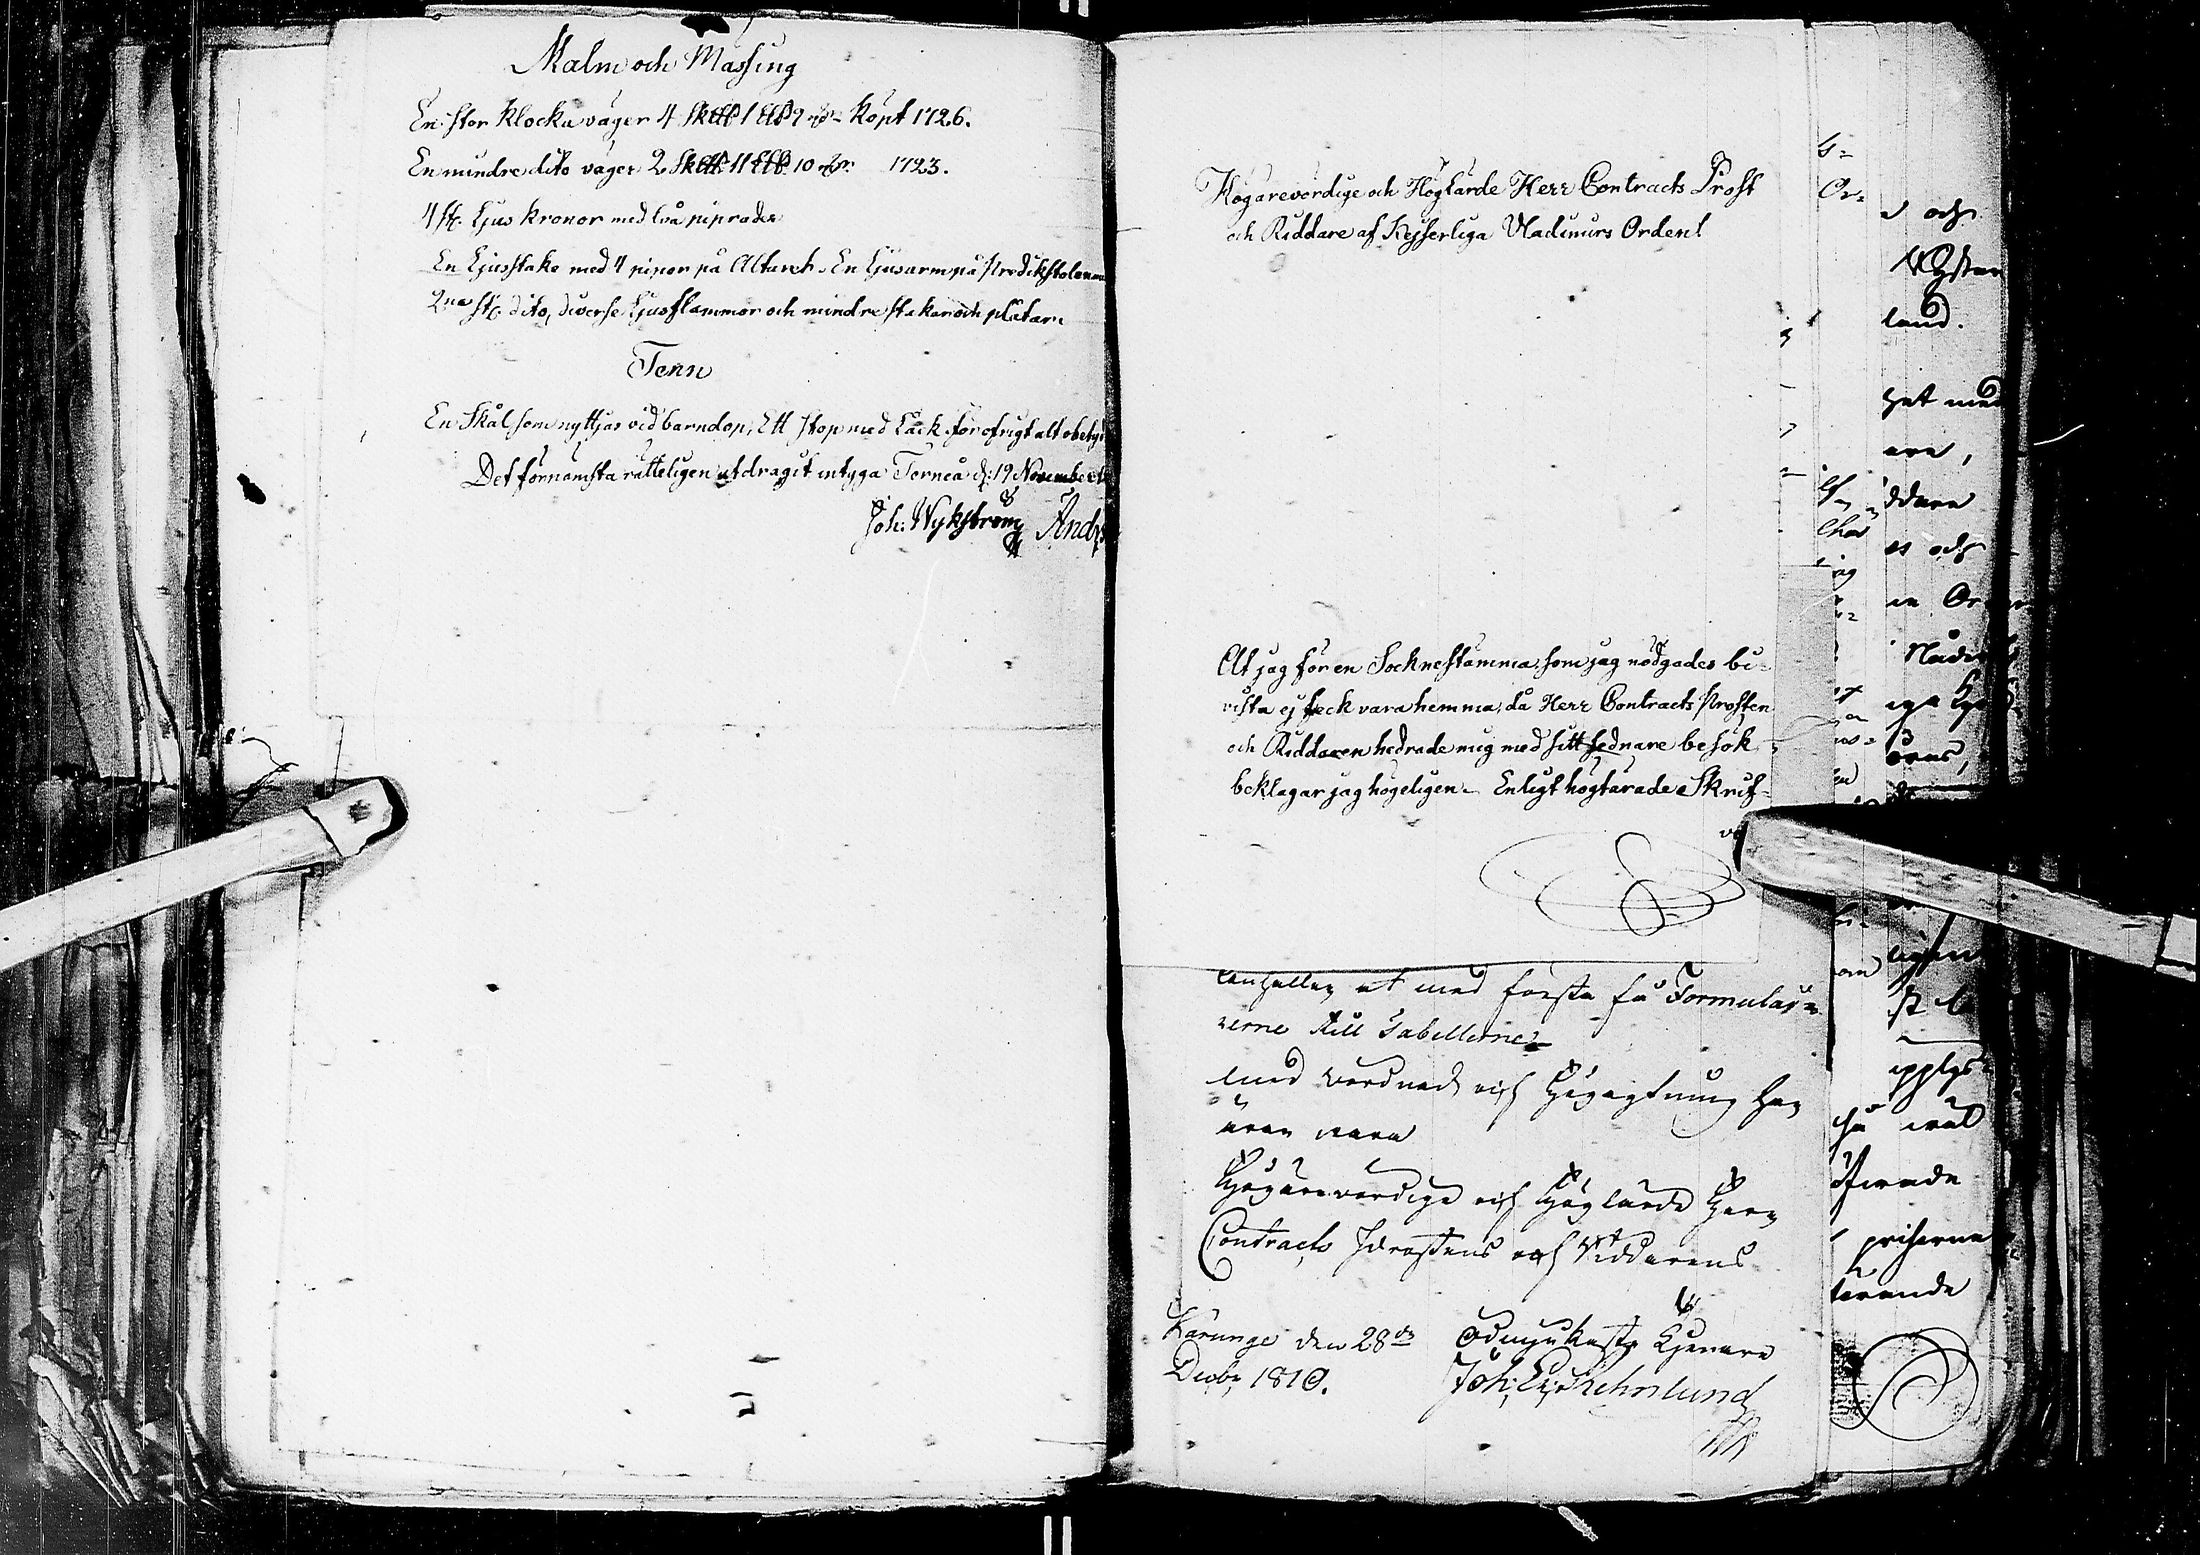 Malm och Massing
En stor klocka väger 4 Sk℔ 1 L℔ 9 mrk= köpt 1726.
En mindre dito väger 2 Sk℔ 11 L℔ 10 mrk: 1723.
4 st. Ljus kronor med två piprader
En Ljusstake med 4 pipor på Altaret. En Ljusarm på Predikstolen
2ne st. dito, diverse Ljusplammor och mindre stakar och plåtar.
Tenn
En Skål som nyttjas vid barndop, Ett stop med Låck. för öfrigt alt obetyd
Det förnämsta rätteligen utdragit intyga Torneå d: 19 November
Joh: Wykström Andr
Högarevördige och Höglärde Herr Contracts Prost
och Riddare af Kejserliga Wladimirs Orden!
At jag för en Socknestämma, som jag nödgades bi-
vista ej feck vara hemma, då Herr Contracts Prosten
och Riddaren hedrade mig med sitt sednare besök
beklagar jag högeligen. Enligt högtärade Skrif-
at med första få Formulär=
rerne till Tabellerne.
Med vördnad och Högagtning har
äran vara
Högärevördige och Höglärde Herr
Contracts Prostens och Riddarens
Karunge den 28de ödmjukaste Tjenare
Decbr 1810. Joh: Er: Rehnlund
G=
Or=
d och
land.
het med
are,
ddare
es och
Nådi
upplys
på wäl
priserna